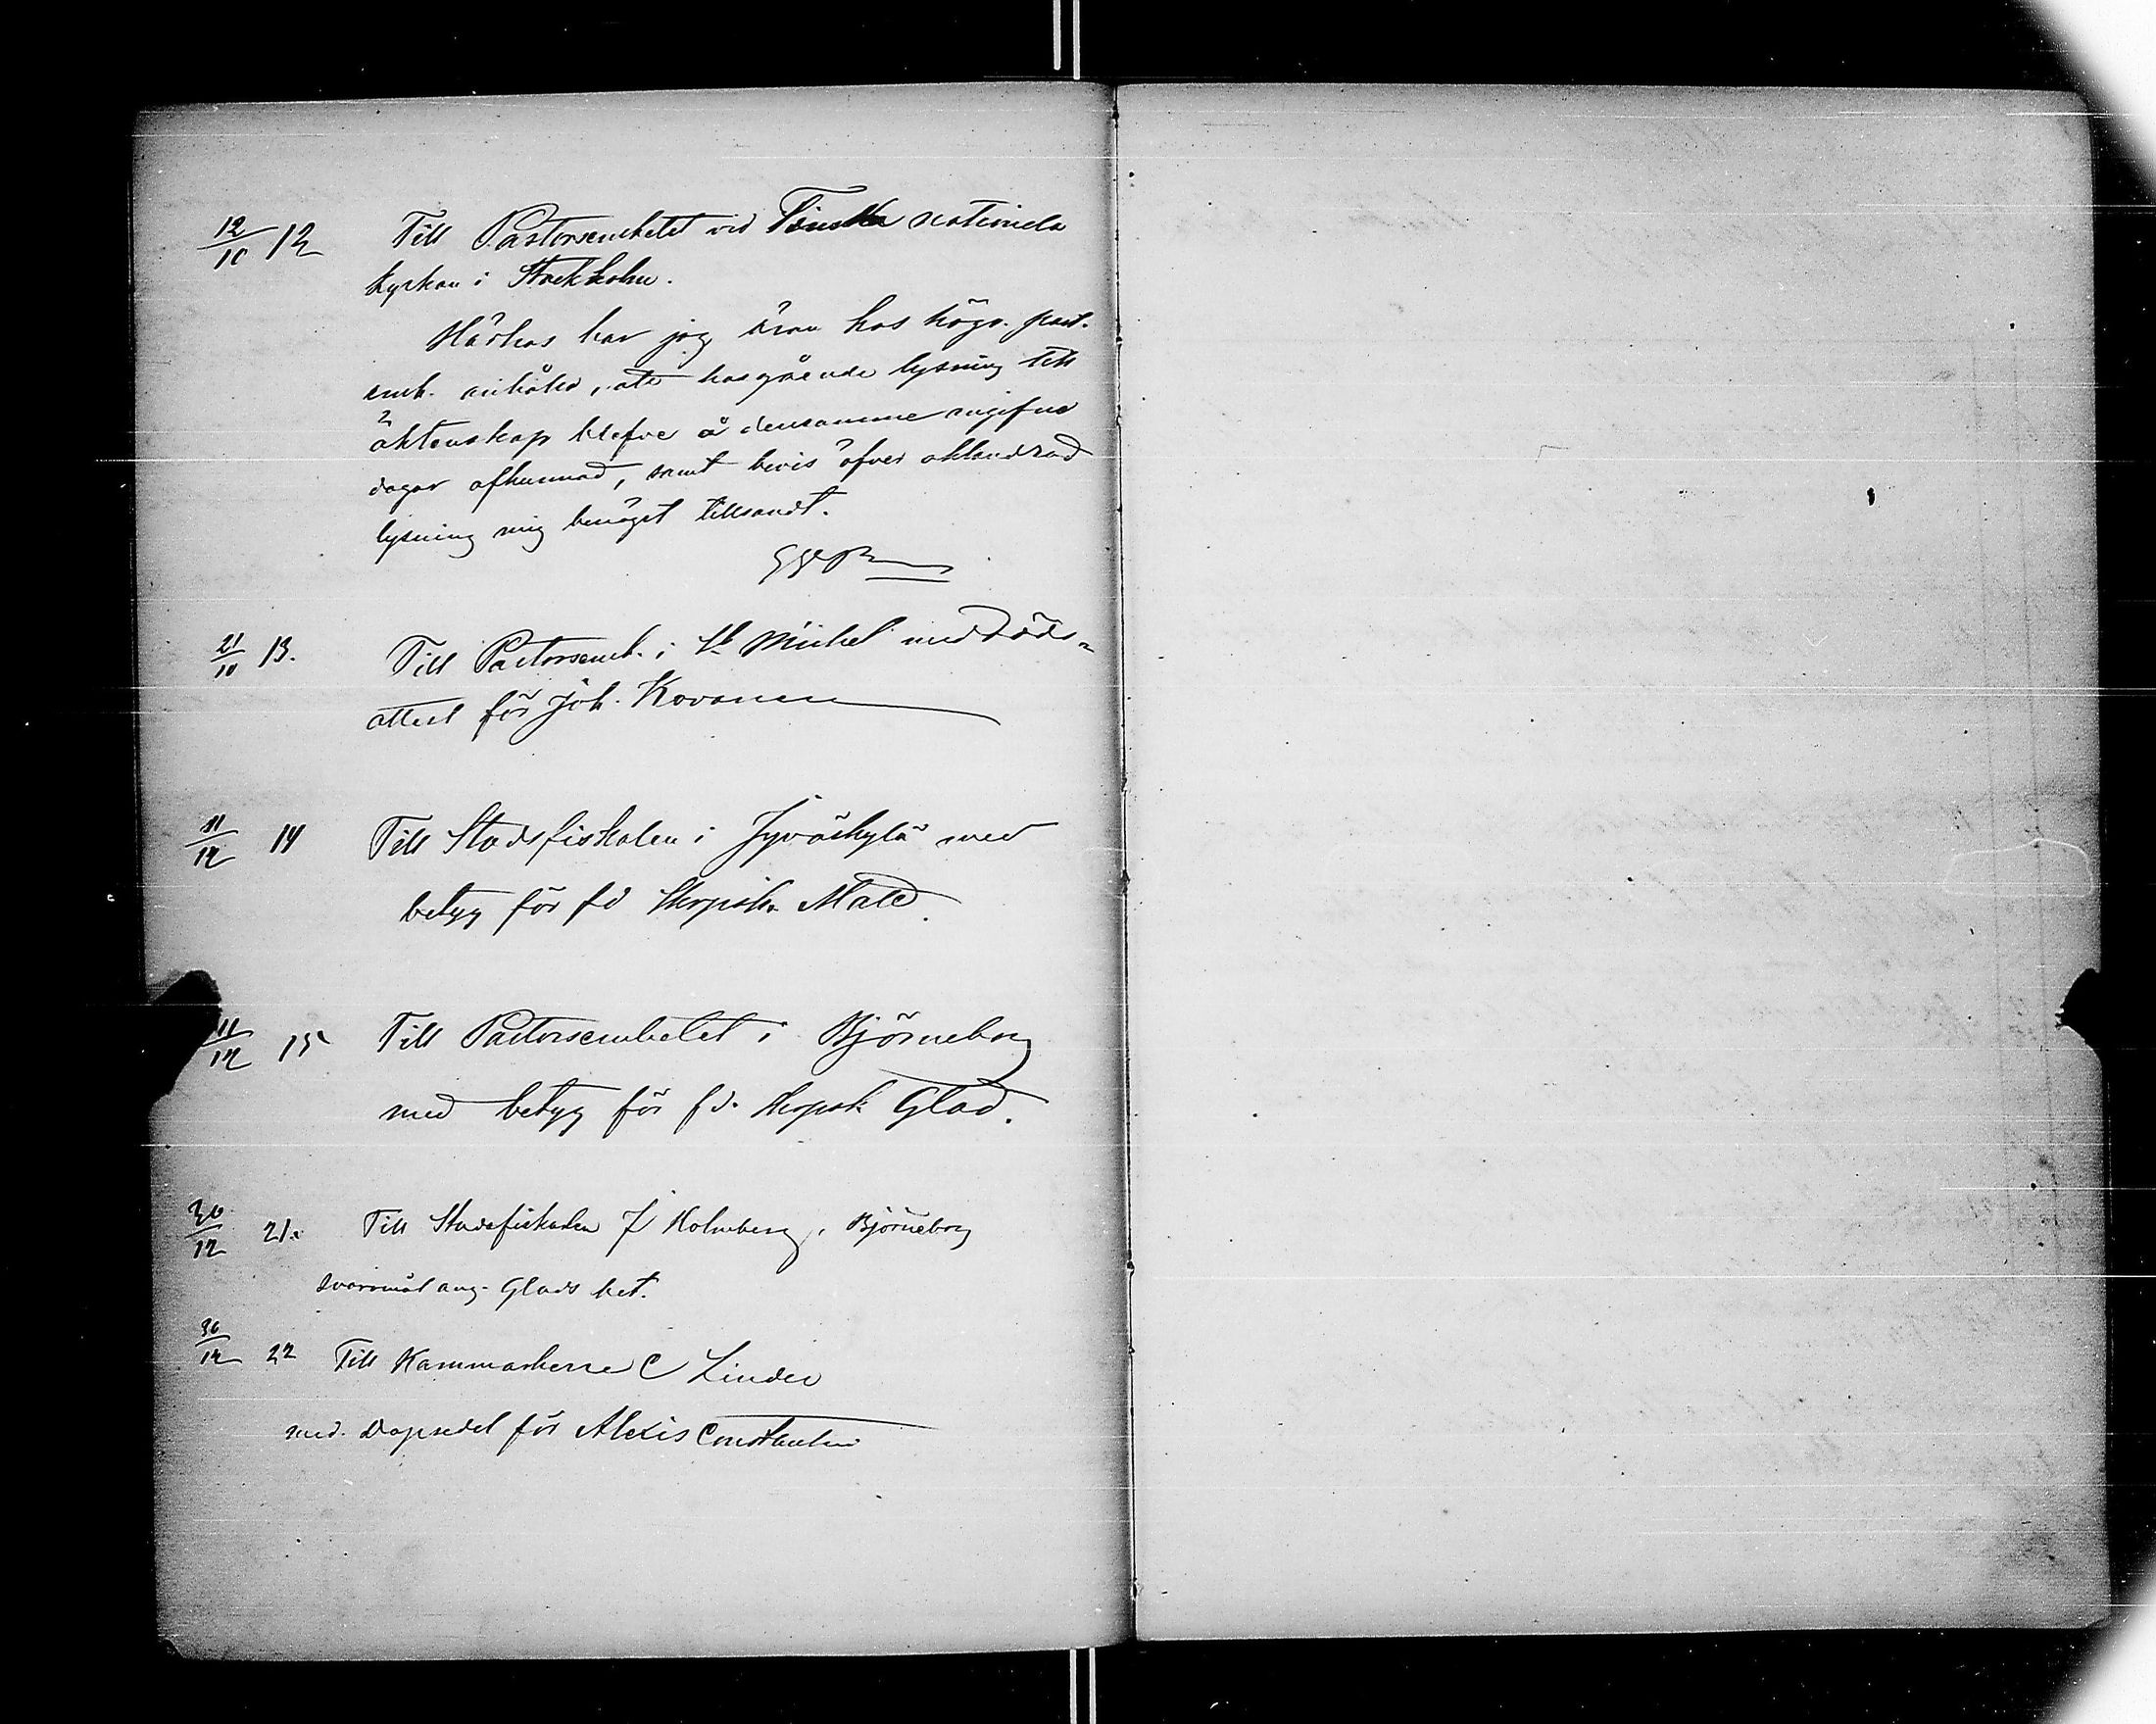 12/10 12 Till Pastorsembetet vid Finska nationela
kyrkan i Stockholm.
Härhos har jag äran hos högv. past.
emb. anhålla, att hosgående lysning till
äktenskap blefve å densamme angifne
dagar afkunnad, samt bevis öfver oklandrad
lysning mig benäget tillsändt.
21/10 13. Till Pastorsemb. i St Michel med döds-
attest för Joh. Kovanen
11/12 14 Till Stadsfiskalen i Jyväskylä med
betyg för fd Skrpsk. Malé.
11/12 15 Till Pastorsembetet i Björneborg
med betyg för fd. Skrpsk Glad.
30/12 21. Till Stadsfiskalen J Holmberg, Björneborg
svarsmål ang. Glads bet.
30/12 22 Till Kammarherre C Linder
med. Dopsedel för Alexis Constantin